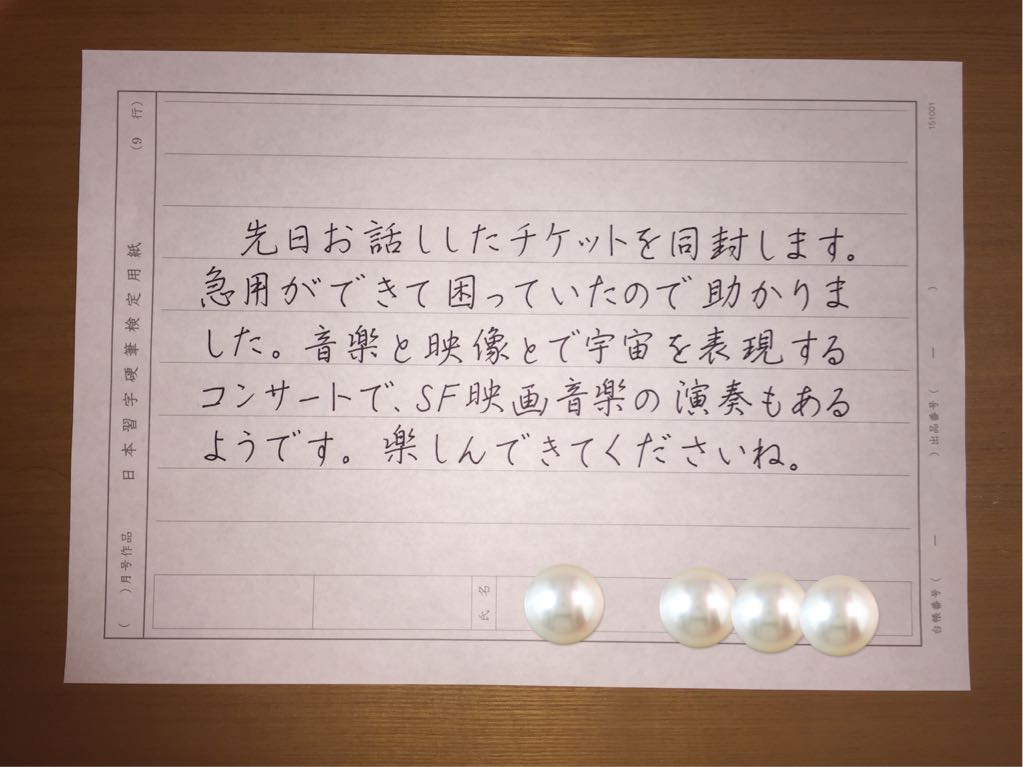 先日お話ししたチケットを同封します。
急用ができて困っていたので助かりま
した。音楽と映像とで宇宙を表現する
コンサートで、SF映画音楽の演奏もある
ようです。楽しんできてくださいね。
氏名
( )月号作品 日本習字硬筆検定用紙 (9 行)
151001
台帳番号( ー )出品番号( ー )